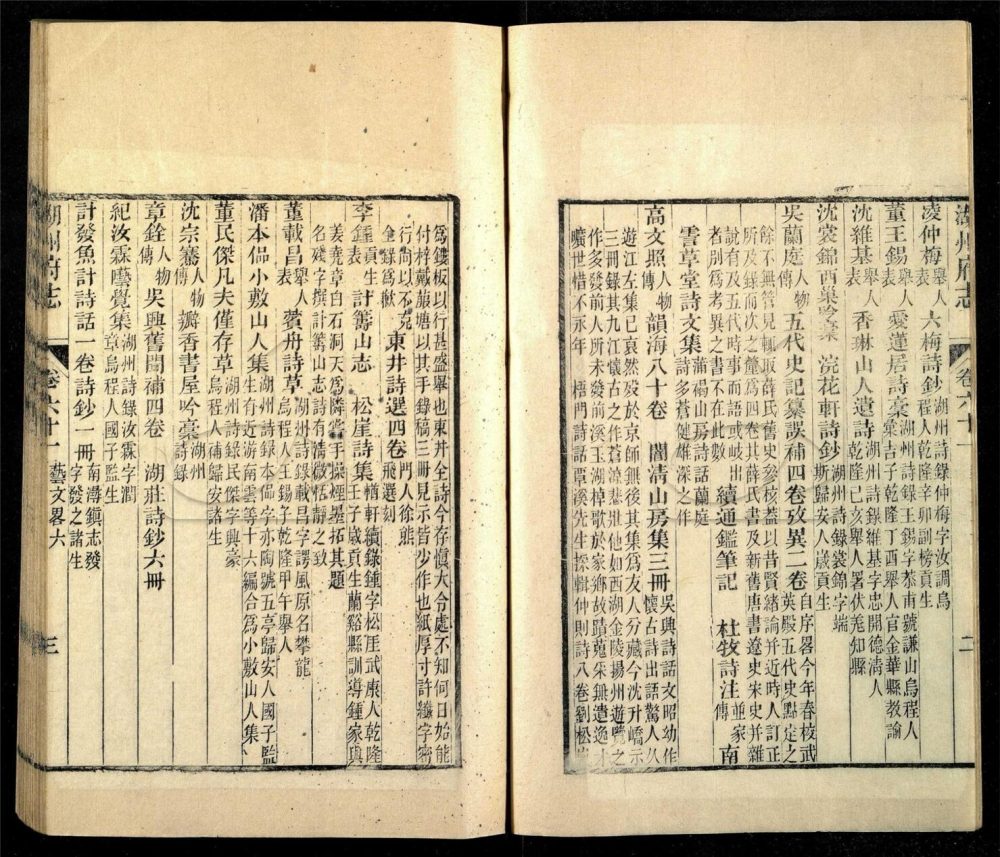 湖州府志 卷六十一 二
凌仲梅舉人表 六梅詩鈔 湖州詩錄仲梅字汝調烏程人乾隆辛卯副榜貢生
董王錫舉人表 愛蓮居詩稾 湖州詩錄王錫字恭甫號謙山烏程人 吉子乾隆丁酉舉人官金華縣教諭
沈維基舉人表 香琳山人遺詩 湖州詩錄維基字忠開德淸人乾隆己亥舉人署伏羌知縣
沈裳錦西巢吟稾 浣花軒詩鈔 湖州詩錄裳錦字端斯歸安人歲貢生
吳蘭庭人物傳 五代史記纂誤補四卷攷異二卷 自序畧今年春校武英殿五代史點定之
餘不無管見輒取薛氏舊史參核蓋以昔賢緒論并近時人訂正
所及錄而次之釐爲四卷其薛氏書及新舊唐書遼史宋史并雜
說有及五代時事而語或岐出者別爲考異之書不在此數 續通鑑筆記 杜牧詩注 並家傳 南
霅草堂詩文集 蒲褐山房詩話蘭庭詩多蒼健雄深之作
高文照人物傳 韻海八十卷 闇淸山房集三冊 吳興詩話文照幼作懷古詩出語驚人久
遊江左集已哀然歿於京師無後其集爲友人分藏今沈丹嶠示
三冊錄其九江懷古之作蒼涼悲壯他如西湖金陵揚州遊覽之
作多發前人所未發前溪玉湖棹歌於家鄉故蹟蒐朱無遺逸才
曠世惜不永年 梧門詩話覃溪先生採輯仲則詩八卷劉松嵐
爲鏤板以行甚盛舉也東井全詩今存愼大令處不知何日始能
付梓戴葯塘以其手錄稿三冊見示皆少作也紙厚寸許纖字密
行尙以不克全錄爲歉 東井詩選四卷 門人徐熊飛選刻
李鍾貢生表 計籌山志 松崖詩集 輶軒續錄鍾字松厓武康人乾隆壬子歲貢生蘭谿縣訓導鍾家與
姜堯章白石洞天爲隣嘗手操煙墨拓其題
名殘字撰計籌山志詩有淸微恬靜之致
董載昌舉人表 賓舟詩草 湖州詩錄載昌字諤風原名攀龍烏程人王錫子乾隆甲午舉人
潘本偘小敷山人集 湖州詩錄本偘字亦陶號五亭歸安人國子監生有近游南雲等十六編合爲小敷山人集
董民傑凡夫僅存草 湖州詩錄民傑字興豪烏程人硨歸安諸生
沈宗騫人物傳 瓣香書屋吟稾 湖州詩錄
章銓人物傳 吳興舊聞補四卷 湖莊詩鈔六冊
紀汝霖藝覺集 湖州詩錄汝霖字潤章烏程人國子監生
計發魚計詩話一卷詩鈔一冊 南潯鎭志發字發之諸生
湖州府志 卷六十一 藝文畧六 三